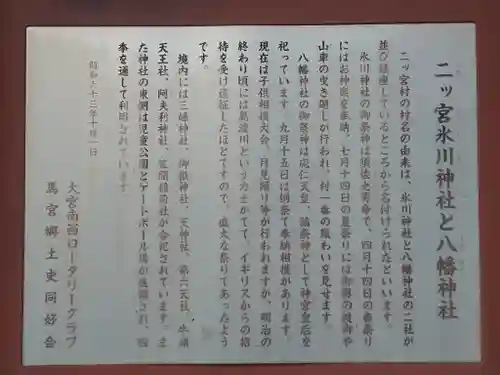 二ッ宮氷川神社と八幡神社
二ッ宮村の村名の由来は、氷川神社と八幡神社の二社が
並び鎮座しているところから名付けられたといいます。
氷川神社の御祭神は須佐之男命で、四月十四日の春祭り
にはお神楽を奉納、七月十四日の夏祭りには御輿の渡御や
山車の曳き廻しが行われ、村一番の賑わいを見せます。
八幡神社の御祭神は応仁天皇、脇祭神として神宮皇后を
祀っています。九月十五日は例祭で奉納相撲があります。
現在は子供相撲大会、月見踊り等が行われますが、明治の
終わり頃には島渡川という力士がでて、イギリスからの招
待を受け遠征したほどですので、盛大な祭りであったよう
です。
境内には三峰神社、御嶽神社、天神社、第六天社、牛頭
天王社、阿夫利神社、笠間稲荷社が合祀されています。ま
た神社の東側は児童公園とゲートボール場が後設され、四
季を通して利用されています。
昭和六十三年十月一日
大宮南西ロータリークラブ
馬宮郷土史同好会